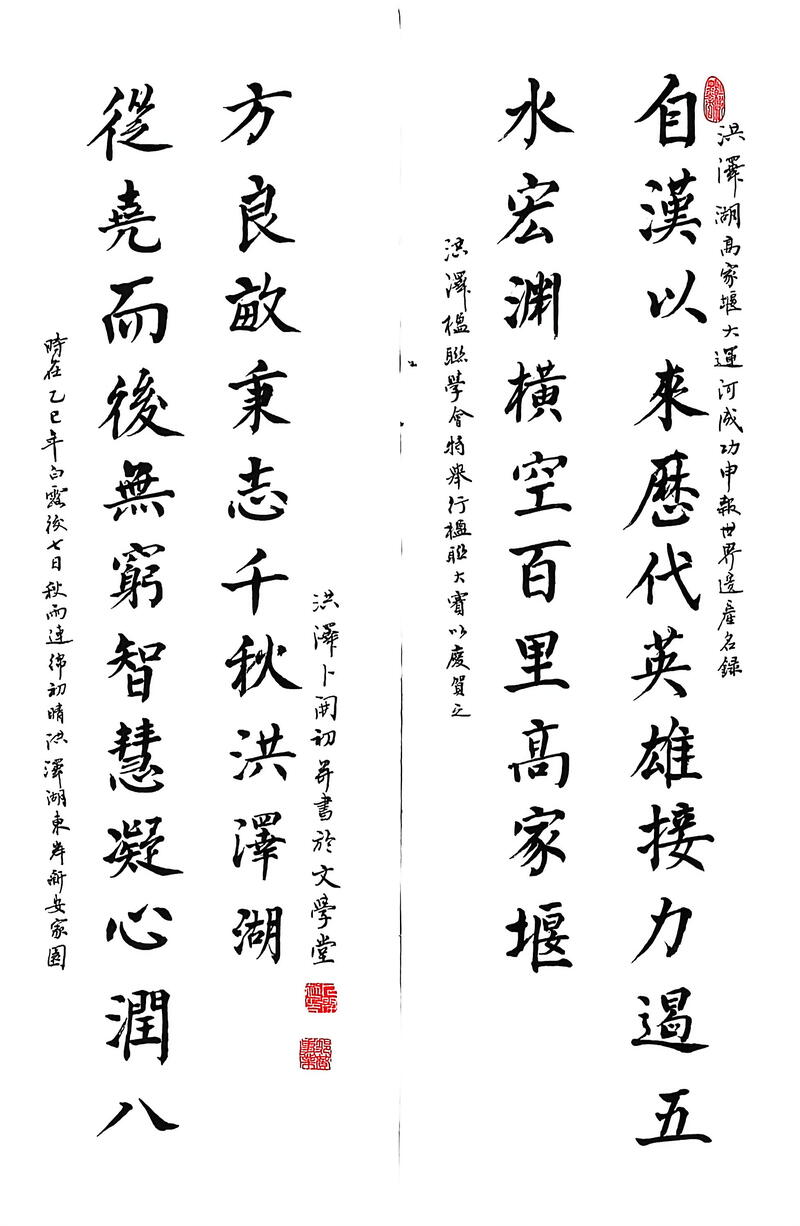 洪澤湖高家堰大運河成功申報世界遺產名錄
自漢以來歷代英雄接力遏五
水宏渊橫空百里高家堰
洪澤楹聯學會特舉行楹聯大賽以慶賀之
時在乙巳年白露後七日秋雨連綿初晴洪澤湖東岸新安家園
從堯而後無窮智慧凝心潤八
方良畝秉志千秋洪澤湖
洪澤卜開初并書於文學堂